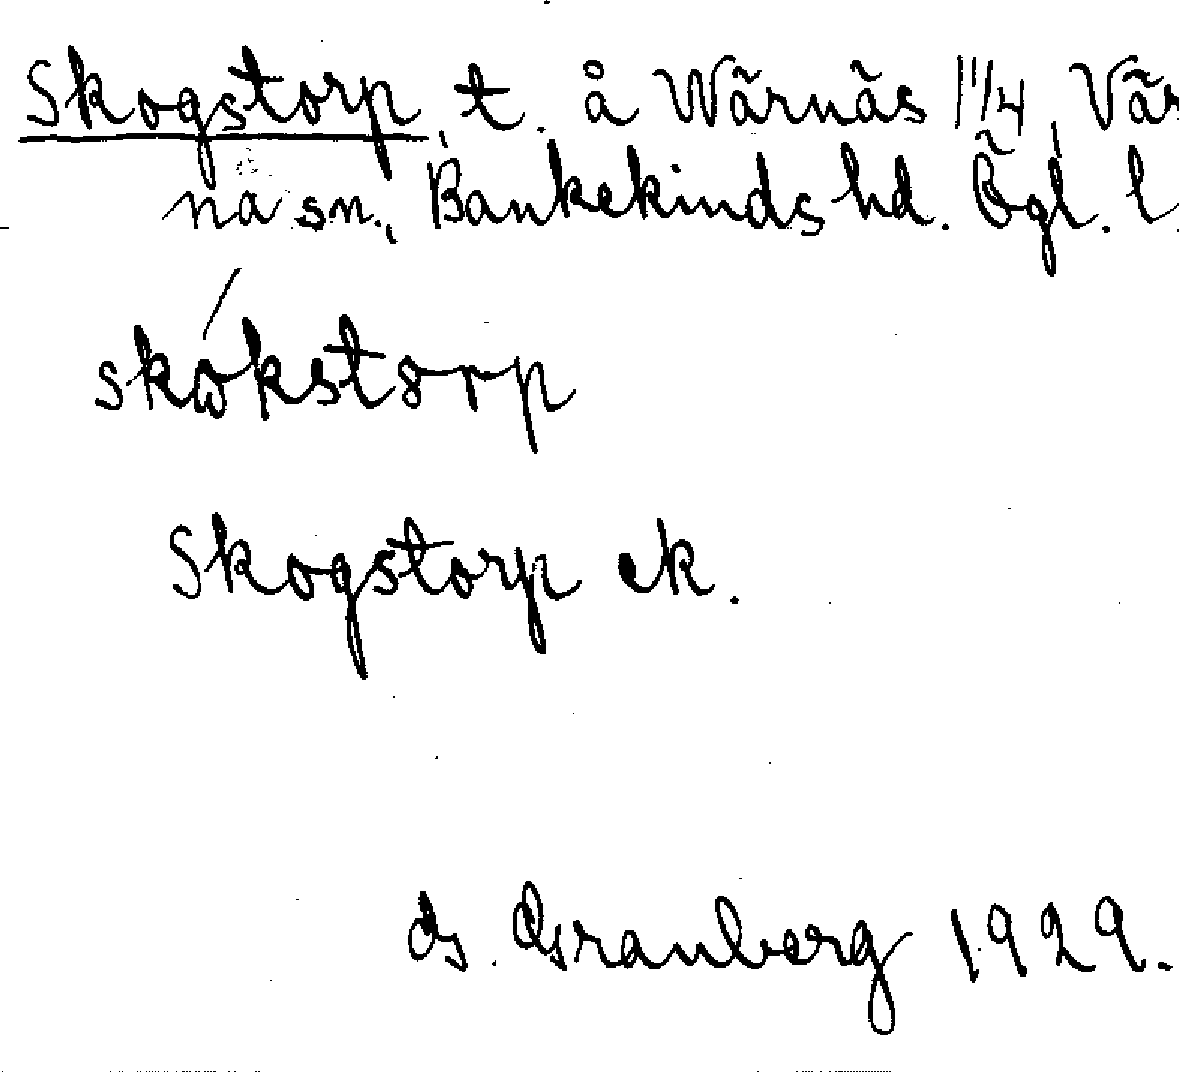 Skogstorp, t. å Wärnäs 1"/4, Vär
na sn., Bankekinds hd. Ögl. l.
skωkstorp
Skogstorp ek.
G. Granberg 1929.